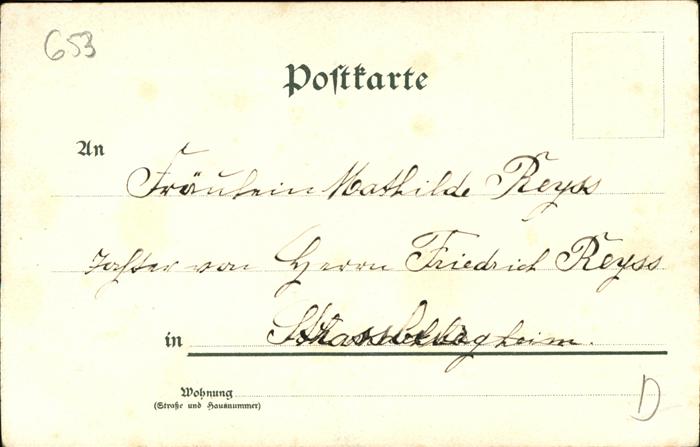 653
Postkarte
An
Fräulein Mathilde Reyss
Tochter von Herrn Friedrich Reyss
in
Wohnung
(Straße und Hausnummer)
D